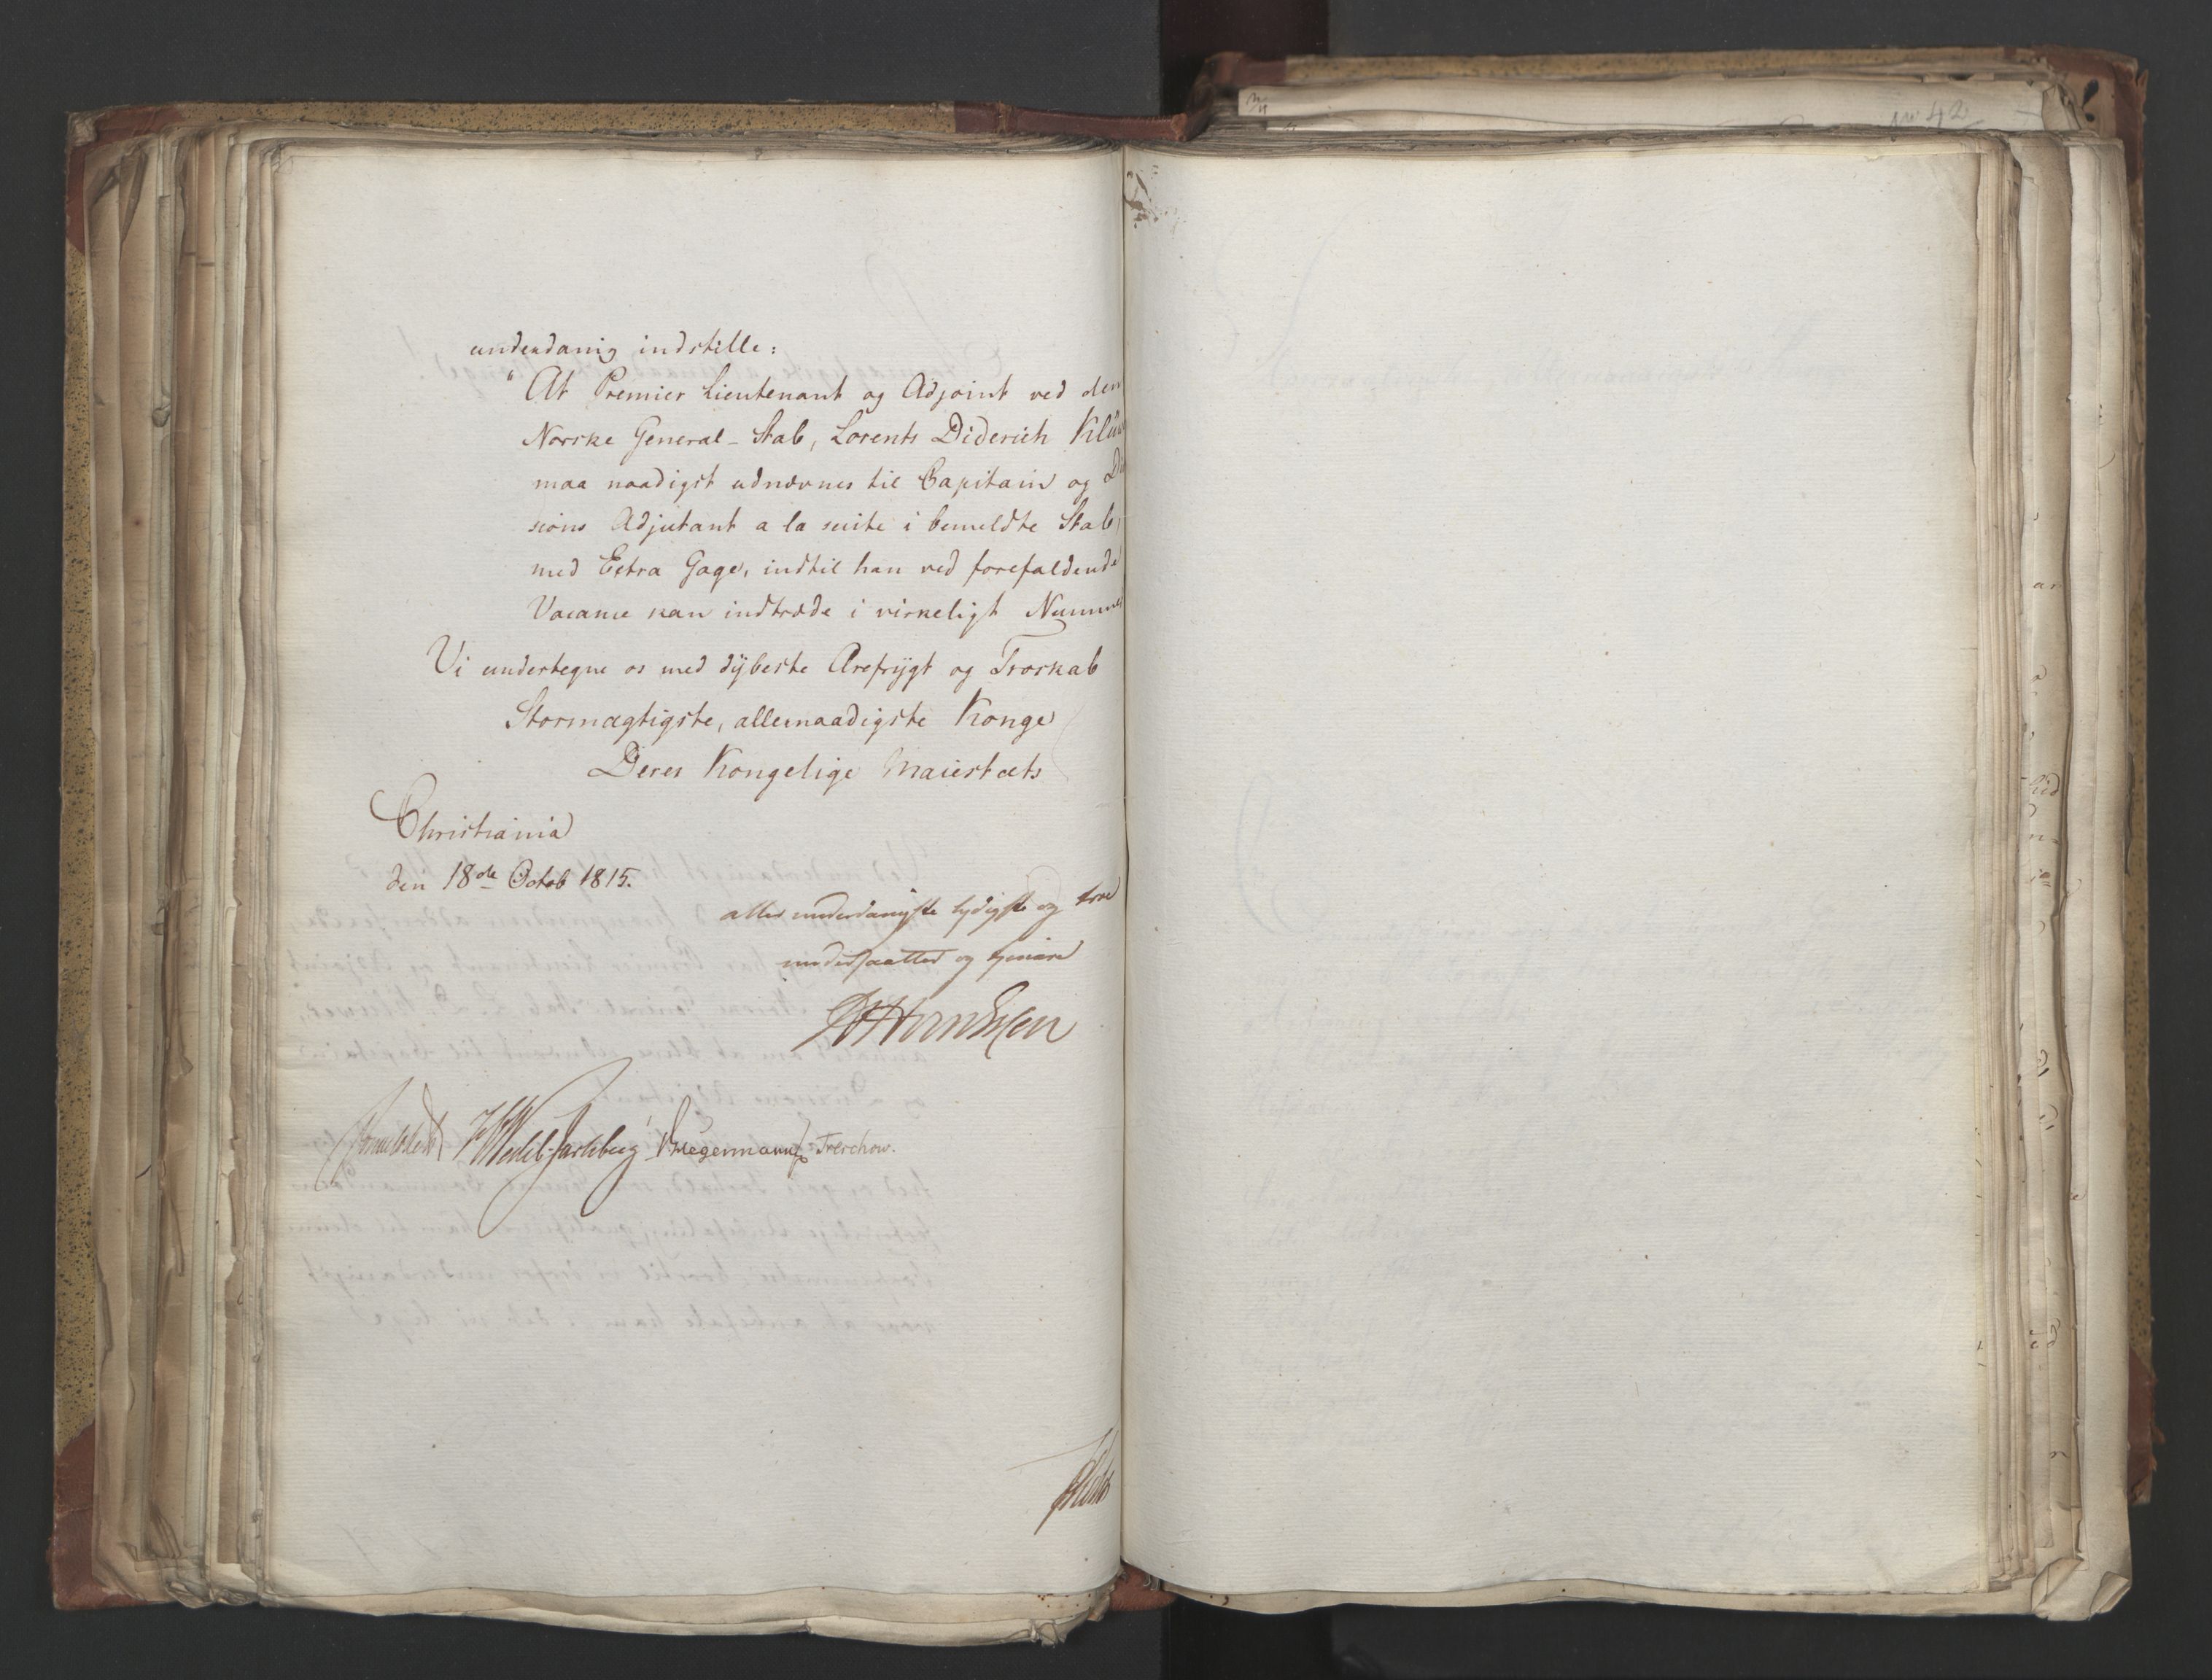 underdanig indstille:
" At Premier Lieutenant og Adjoint ved den
Norske General-Stab, Lorents Diderich Klüw
maa naadigst udnævnes til Capitain og Di
sions Adjutant a la suite i bemeldte Stab,
med Extra Gage, indtil han ved forefaldende
Vacance kan indtræde i virkeligt Nummer
Vi undertegne os med dÿbeste Ærefrÿgt og Troskab
Stormægtigste, allernaadigste Konge
Deres Kongelige Maiestæts
Christiania
den 18de Octob 1815.
aller underdanigste lydigste og troe
undersaatter og tjenere
Sommerhielm HWedel Jarlsberg Kriegermann Treschow.
No 42